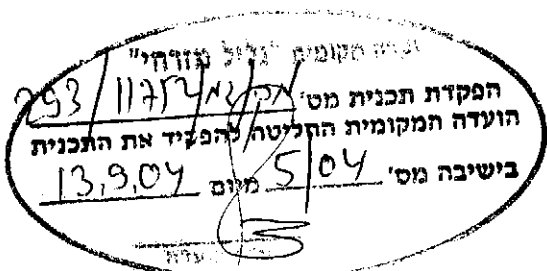 ועדה מקומית "גליל מזרחי"
הפקדת תכנית מס' מק/גמ/11752/293
הועדה המקומית החליטה להפקיד את התכנית
בישיבה מס' 5/04 מיום 13.9.04